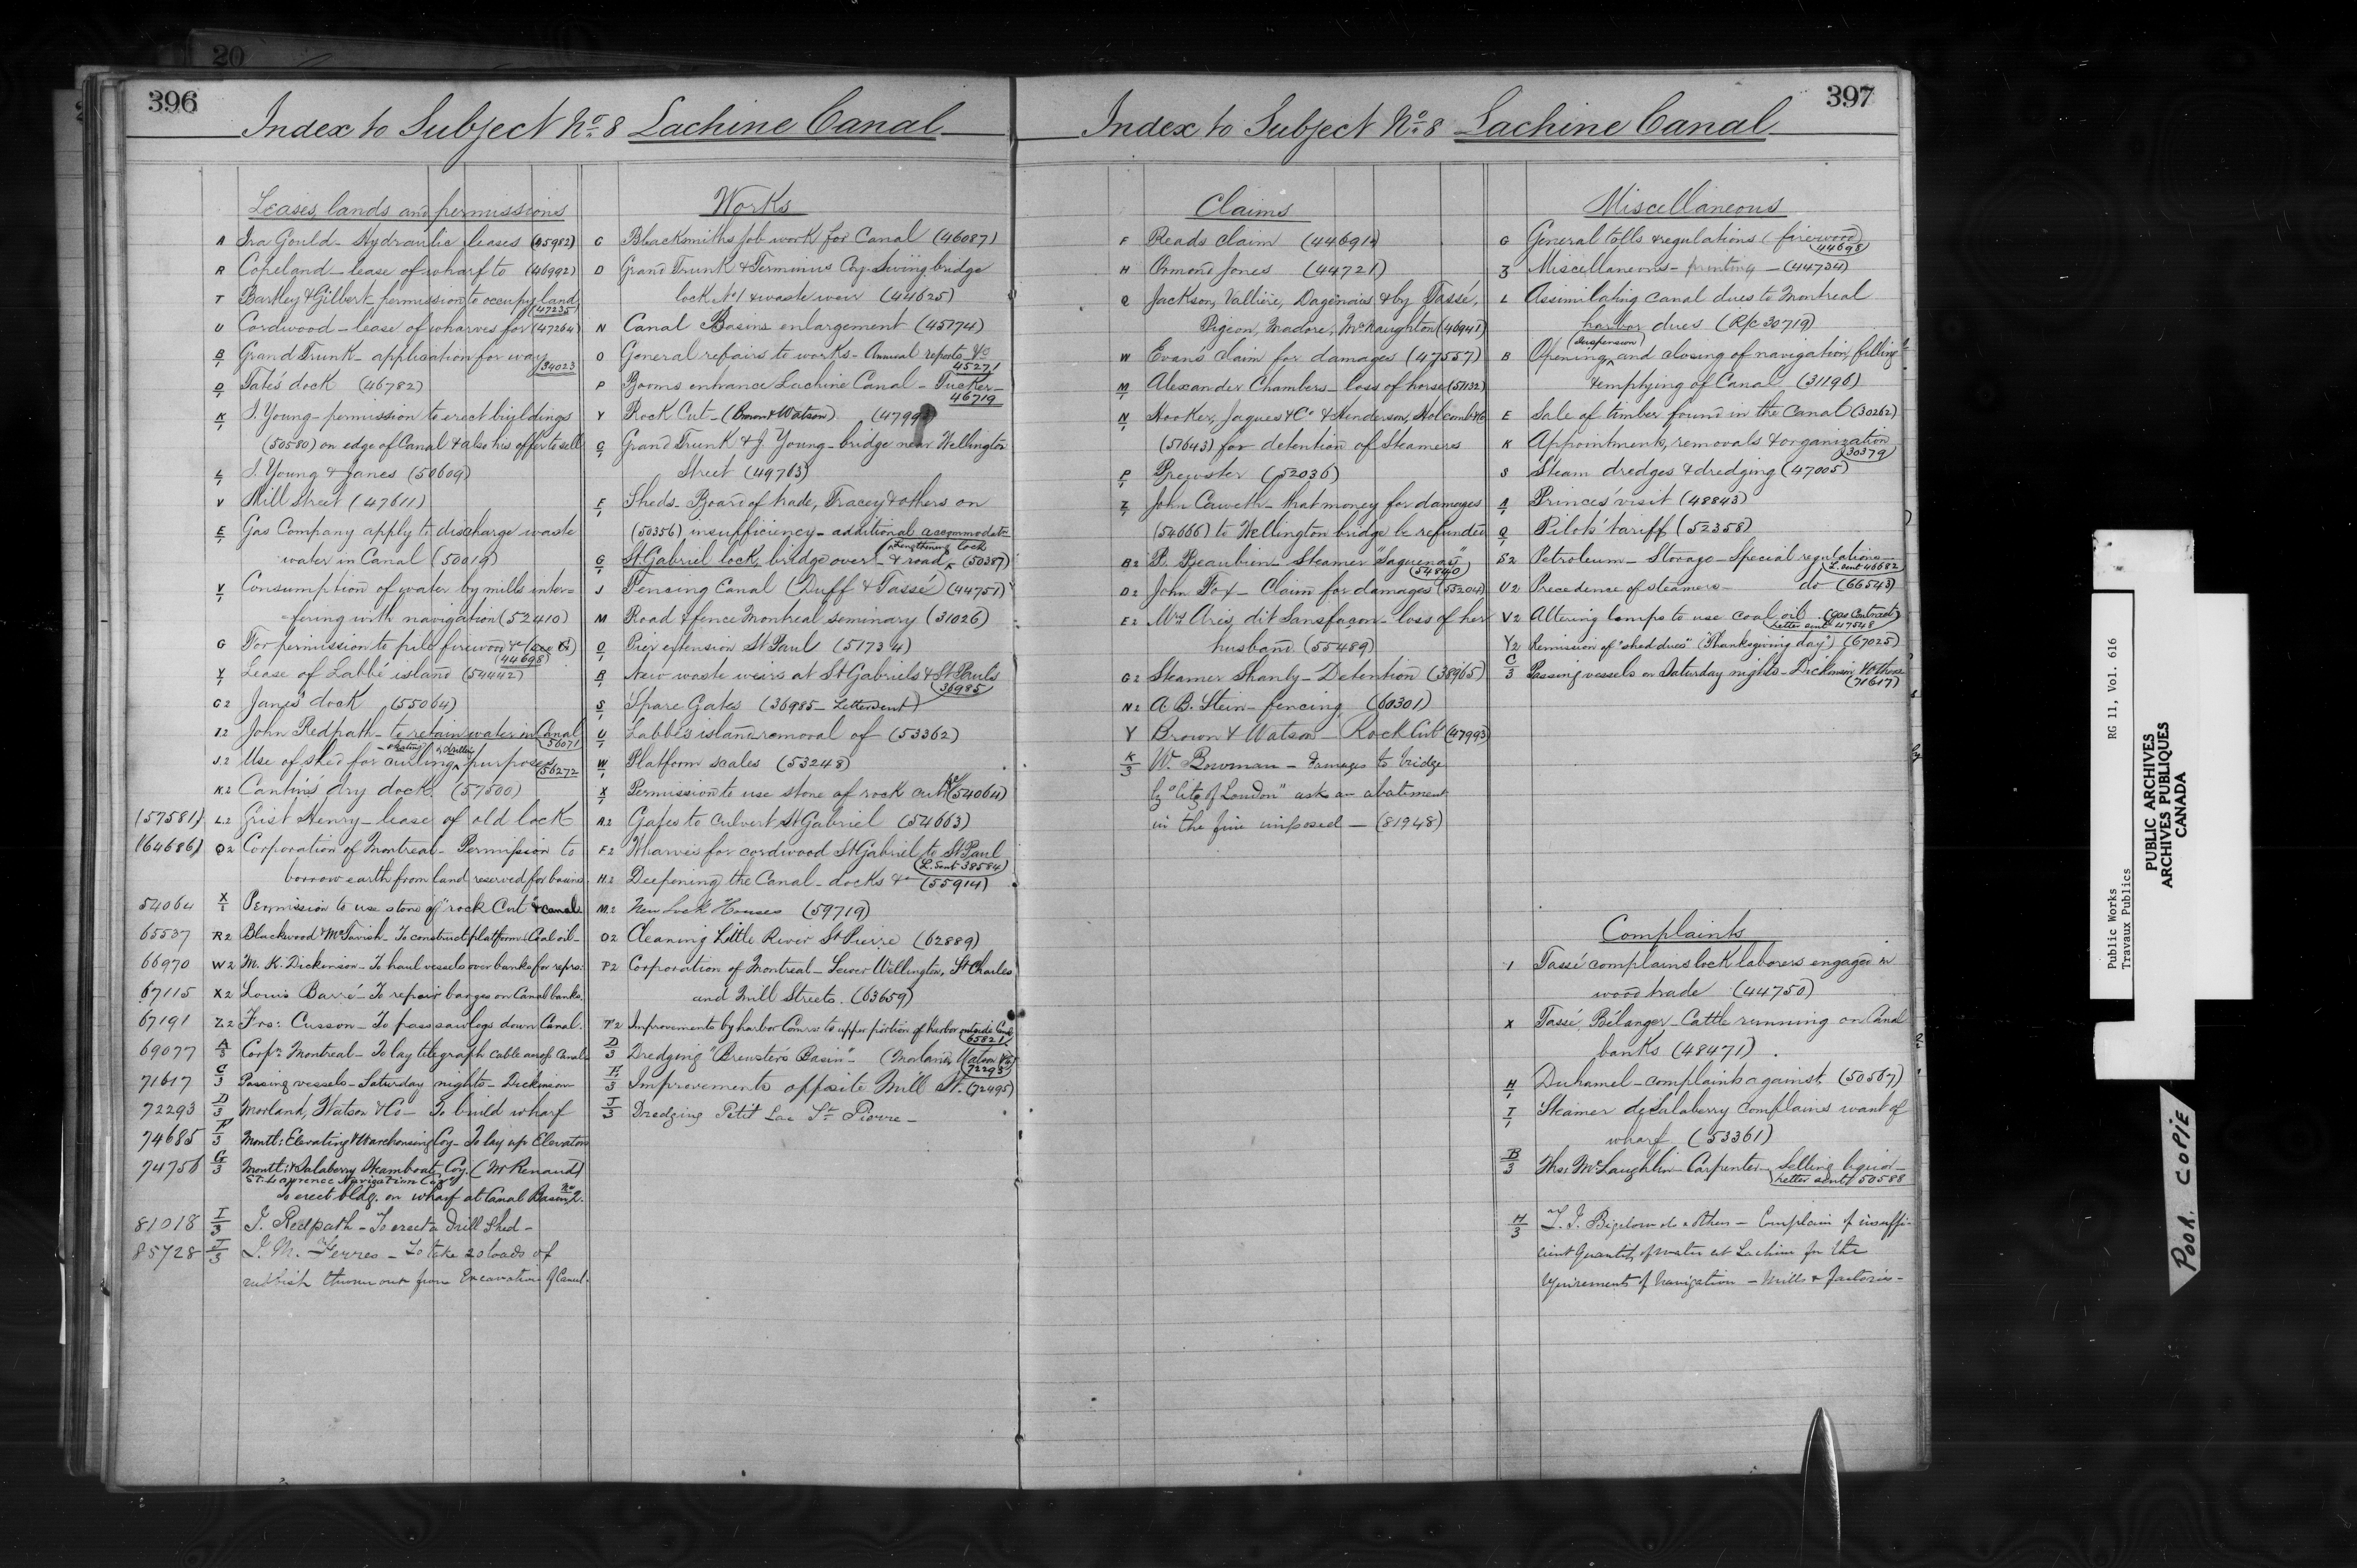 396
Index to Subject No. 8 Lachine Canal
Leases, lands and permissions
A Ira Gould - Hydraulic leases (45952)
R Copeland - lease of wharf to (46992)
T Bartley & Gilbert - permission to occupy land
(47235)
U Cordwood - lease of wharves for (47264)
B/1 Grand Trunk - application for way
34023
D/1 Tate's dock (46782)
K/1 J. Young - permission to erect buildings
(50580) on edge of Canal & also his offer to sell
L/1 J. Young & Janes (50609)
V Mill Street (47611)
E/1 Gas Company apply to discharge waste
water in Canal (50019)
V/1 Consumption of water by mills inter=
=fering with navigation (52410)
G For permission to pile firewood &c
(44698)
Y/1 Lease of Labbé island (54442)
C2 Janes' dock (55064)
I2 John Redpath - to retain water in Canal
56071
J.2 Use of shed for curling purposes
- skating & drilling
(56272
K.2 Cantin's dry dock. (57500)
(57581) L.2 Grist Henry - lease of old lock
(64686) Q2 Corporation of Montreal - Permission to
borrow earth from land reserved for basins
54064 X/1 Permission to use stone of "rock Cut" & canal
65537 R2 Blackwood & McTavish - To construct platform: Coal oil -
66970 W2 M. K. Dickinson - To haul vessels over banks for reprs:
67115 X2 Louis Barré - To repair barges on Canal banks.
67191 Z2 Frs: Cusson - To pass sawlogs down Canal.
69077 A/3 Corpn Montreal - To lay telegraph cable across Canal
71617 C/3 Passing vessels - Saturday nights - Dickinson
72293 D/3 Morland, Watson & Co - To build wharf
74685 F/3 Montl: Elevating & Warehousing Coy - To lay up Elevators
74756 G/3 Montl: & Salaberry Steamboat Coy. (Mr Renaud)
St. Lawrence Navigation Coy
To erect bldg. on wharf at Canal Basin No 2.
81018 I/3 J. Redpath - To erect a Drill Shed -
85728 J/3 J. M. Ferres - To take 20 loads of
rubbish thrown out from Excavation of Canal.
Works
C Blacksmiths job work for Canal (46087)
D Grand Trunk & Terminus Coy. Swing bridge
lock No 1 & waste weir (44625)
N Canal Basins enlargement (45174)
O General repairs to works - Annual reports &c
45271
P Booms entrance Lachine Canal - Tucker -
46719
Y Rock Cut - (Brown & Watson) (47993)
C/1 Grand Trunk & J. Young - bridge near Wellington
Street (49763)
F/1 Sheds - Board of trade, Tracey & others on
(50356) insufficiency - additional accommodatn
G/1 St Gabriel lock, bridge over - & road (50387)
lengthening lock
J Fencing Canal (Duff & Tassé) (44751)
M Road & fence Montreal seminary (31026)
O/1 Pier extension St Paul (51734)
R/1 New waste weirs at St Gabriels & St Pauls
(36985)
S/1 Spare Gates (36985 - Letter Sent)
U/1 Labbé's island removal of (53362)
W/1 Platform scales (53248)
X/1 Permission to use stone of rock cut &c (54064)
A2 Gates to culvert St Gabriel (54663)
F2 Wharves for cordwood St Gabriel to St Paul
(L. Sent 38584)
H.2 Deepening the Canal - docks &c (55914)
M.2 New Lock Houses (59719)
O2 Cleaning Little River St Pierre (62889)
P2 Corporation of Montreal - Sewer Wellington, St Charles
and Mill Streets. (63659)
T2 Improvements by harbor Comrs: to upper portion of harbor outside Canal
(65821
D/3 Dredging "Brewster's Basin" - (Morland, Watson & Co)
(72293)
E/3 Improvements opposite Mill St. (72495)
J/3 Dredging Petit Lac St Pierre -
397
Index to Subject No. 8 Lachine Canal
Claims
F Reads claim (44691)
H Ormond Jones (44721)
Q Jackson, Vallière, Dagenais & by Tassé,
Pigeon, Madore, McNaughton (46941)
W Evan's claim for damages (47557)
M/1 Alexander Chambers - loss of horse (51132)
N/1 Hooker, Jaques & Co & Henderson, Holcomb &c
(57643) for detention of steamers
P/1 Brewster (52036)
Z/1 John Caweth - that money for damages
(54666) to Wellington bridge be refunded
B2 P. Beaubien - Steamer "Saguenay"
(54840)
D2 John Fox - Claim for damages (55204)
E2 Mrs Aris, dit Sansfaçon - loss of her
husband (55489)
G2 Steamer Shanly - Detention (38965)
N2 A. B. Stein - fencing (60301)
Y Brown & Watson - Rock Cut (47993)
K/3 W. Bowman - damages to bridge
by "City of London" ask an abatement
in the fine imposed - (81948)
Miscellaneous
G General tolls & regulations (firewood)
(44698)
Z Miscellaneous - printing - (44734)
L Assimilating canal dues to Montreal
harbor dues (R/c 30719)
B Opening and closing of navigation, filling
(suspension)
& emptying of Canal (31196)
E Sale of timber found in the Canal (30262)
K Appointments, removals & organization
30379
S Steam dredges & dredging (47005)
A/1 Princes' visit (48843)
Q/1 Pilots' tariff (52358)
S2 Petroleum - Storage - Special regulations -
L. sent 46682
U2 Precedence of steamers - do (66543)
V2 Altering lamps to use coal oil (Gas Contract)
Letter sent 47548
Y2 Remission of "shed dues" (Thanksgiving day) (67025)
C/3 Passing vessels on Saturday nights - Dickinson & others
(71617)
Complaints
I Tassé complains lock laborers engaged in
wood trade (44750)
X Tassé, Bélanger - Cattle running on Canal
banks (48471)
H/1 Duhamel - complaints against. (50567)
T/1 Steamer de Salaberry complains want of
wharf (53361)
B/3 Thos McLaughlin - Carpenter - Selling liquor -
Letter sent 50588
H/3 Bigelow & others - Complain of insuffi-
cient Quantity of water at Lachine for the
requirements of Navigation - Mills & factories -
Public Works RG 11, Vol. 616
Travaux Publics
PUBLIC ARCHIVES
ARCHIVES PUBLIQUES
CANADA
POOR COPIE
20